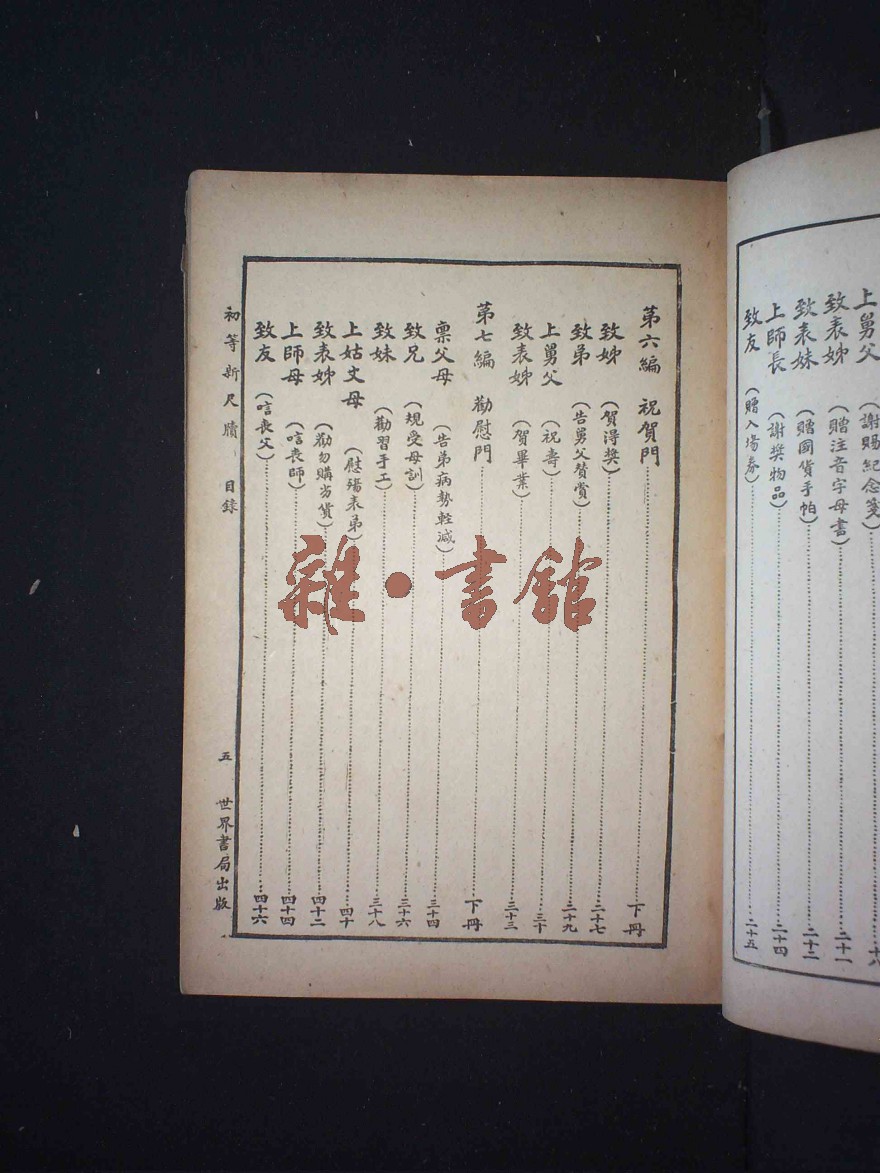 上舅父（謝賜紀念箋）……十八
致表姊（贈注音字母書）……二十一
致表妹（贈國貨手帕）……二十三
上師長（謝奬物品）……二十四
致友（贈入場券）……二十五
第六編 祝賀門……下冊
致姊（賀得奬）……二十七
致弟（告舅父贊賞）……二十九
上舅父（祝壽）……三十
致表姊（賀畢業）……三十三
第七編 勸慰門……下冊
稟父母（告弟病勢輕減）……三十四
致兄（規受母訓）……三十六
致妹（勸習手工）……三十八
上姑丈母（慰殤表弟）……四十
致表姊（勸勿購劣貨）……四十二
上師母（唁喪師）……四十四
致友（唁喪父）……四十六
初等新尺牘 目錄 五 世界書局出版
雜·書館